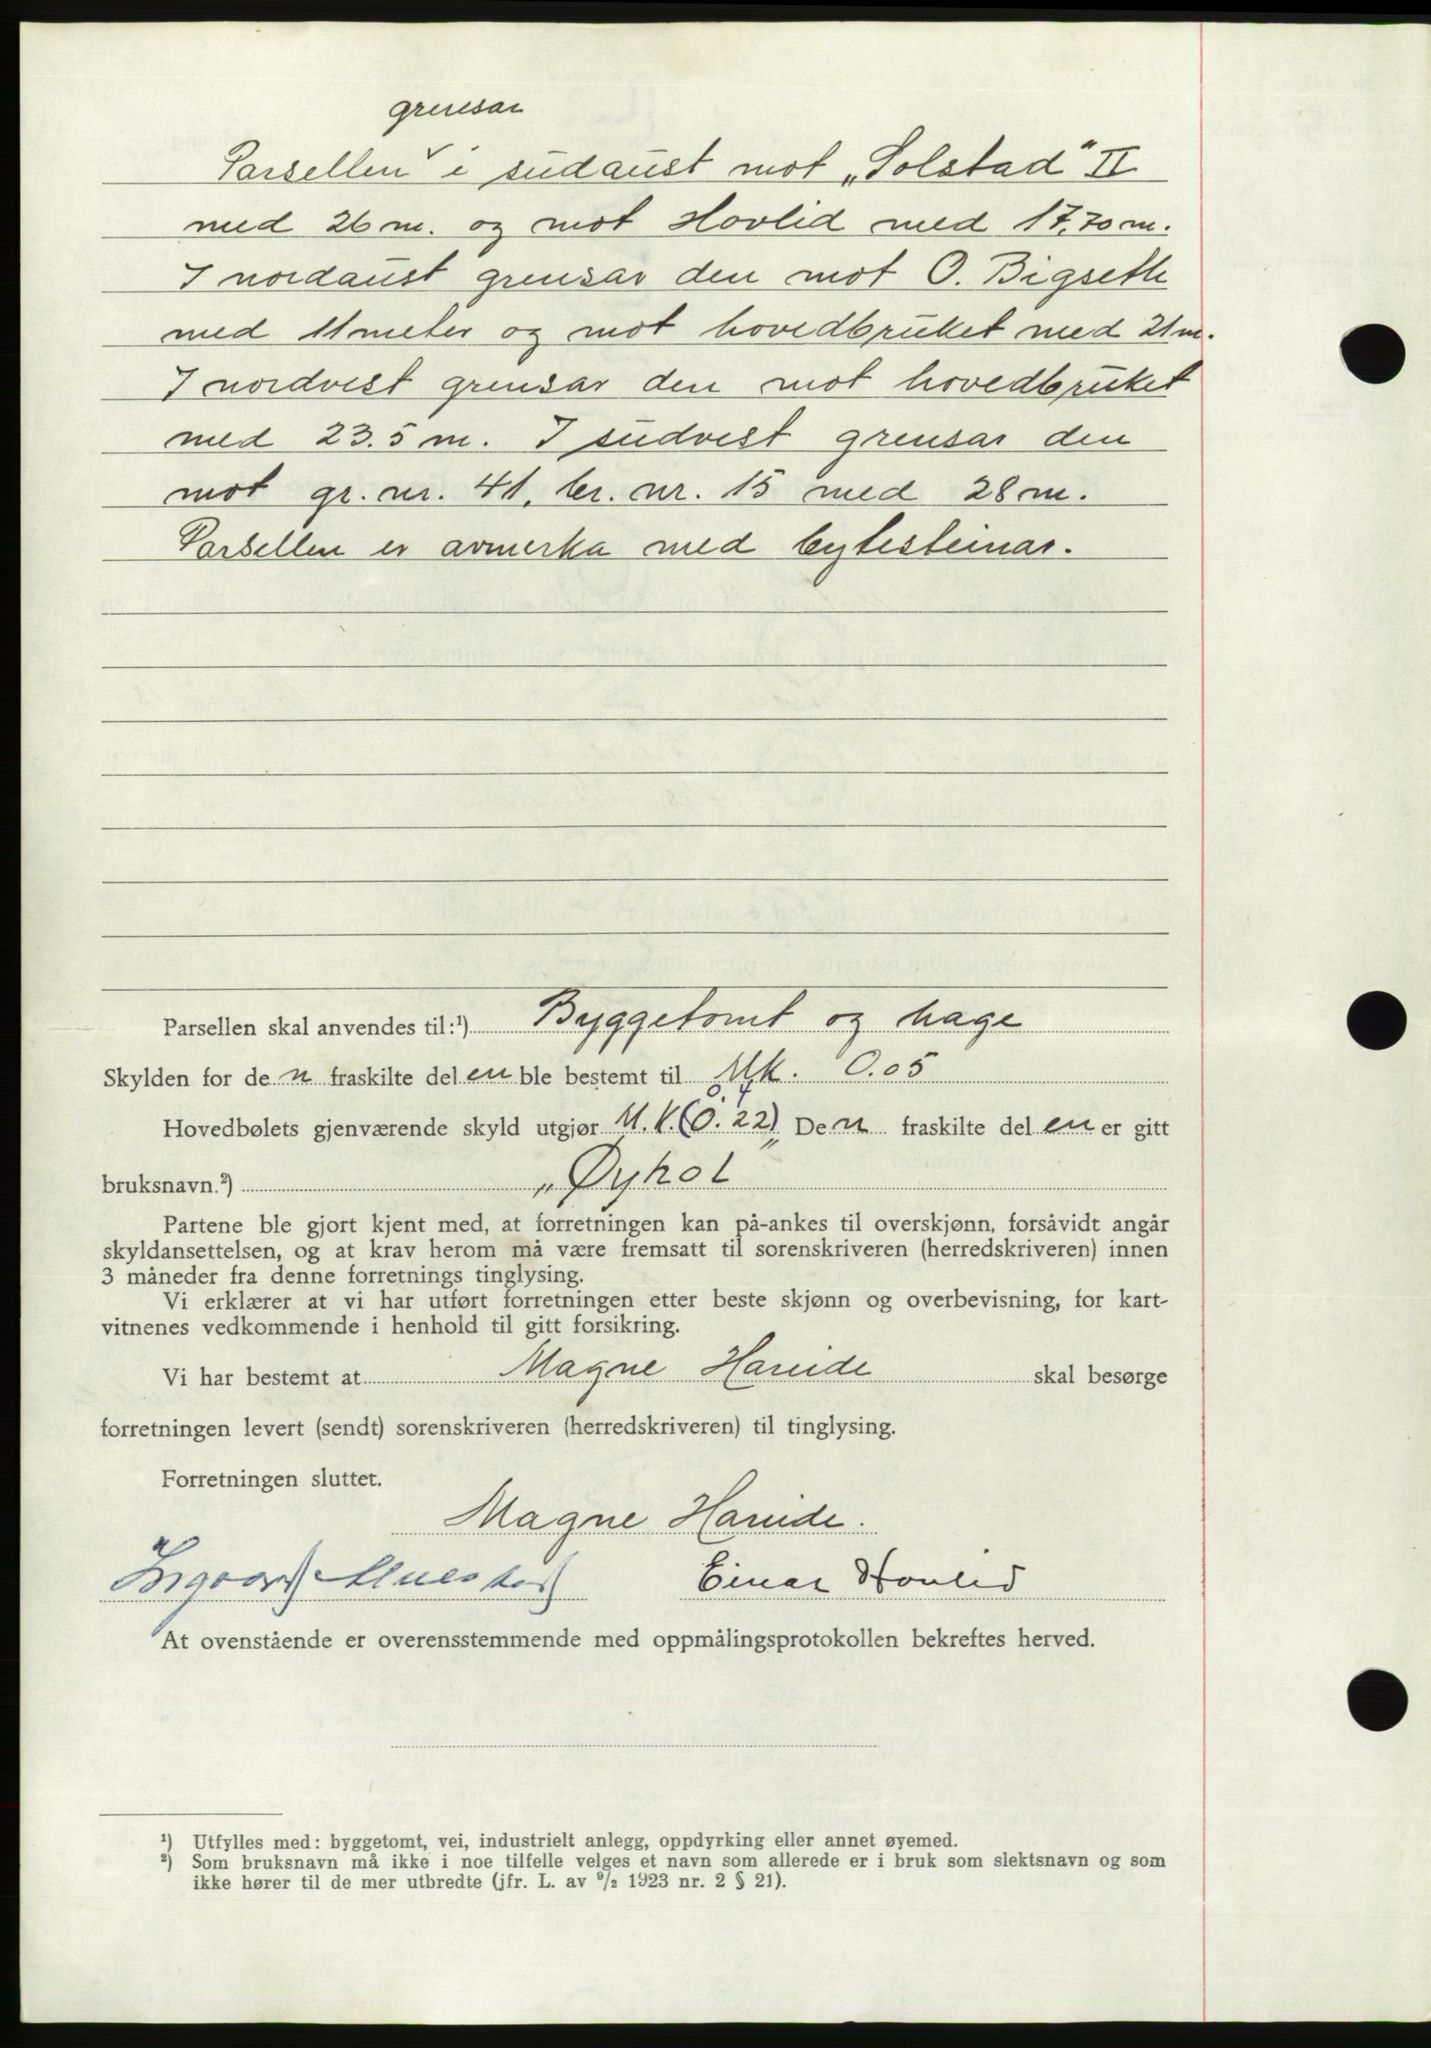 grensar
Parsellen ˅ i sudaust mot „Solstad“ II
med 26 m. og mot Hovlid med 17,70 m.
I nordaust grensar den mot O. Bigseth
med 11 meter og mot hovedbruket med 21 m.
I nordvest grensar den mot hovedbruket
med 23.5 m. I sudvest grensar den
mot gr. nr. 41, br. nr. 15 med 28 m.
Parsellen er avmerka med bytesteinar.
Parsellen skal anvendes til:¹) Byggetomt og hage
Skylden for de n fraskilte del en ble bestemt til Mk. 0.05
0. 4
Hovedbølets gjenværende skyld utgjør M.K. (0.22) De n fraskilte del en er gitt
bruksnavn.²) „Øyhol“
Partene ble gjort kjent med, at forretningen kan på-ankes til overskjønn, forsåvidt angår
skyldansettelsen, og at krav herom må være fremsatt til sorenskriveren (herredskriveren) innen
3 måneder fra denne forretnings tinglysing.
Vi erklærer at vi har utført forretningen etter beste skjønn og overbevisning, for kart-
vitnenes vedkommende i henhold til gitt forsikring.
Vi har bestemt at Magne Hareide skal besørge
forretningen levert (sendt) sorenskriveren (herredskriveren) til tinglysing.
Forretningen sluttet.
Magne Hareide.
Einar Hovlid
At ovenstående er overensstemmende med oppmålingsprotokollen bekreftes herved.
¹) Utfylles med: byggetomt, vei, industrielt anlegg, oppdyrking eller annet øyemed.
²) Som bruksnavn må ikke i noe tilfelle velges et navn som allerede er i bruk som slektsnavn og som
ikke hører til de mer utbredte (jfr. L. av ⁹/₂ 1923 nr. 2 § 21).